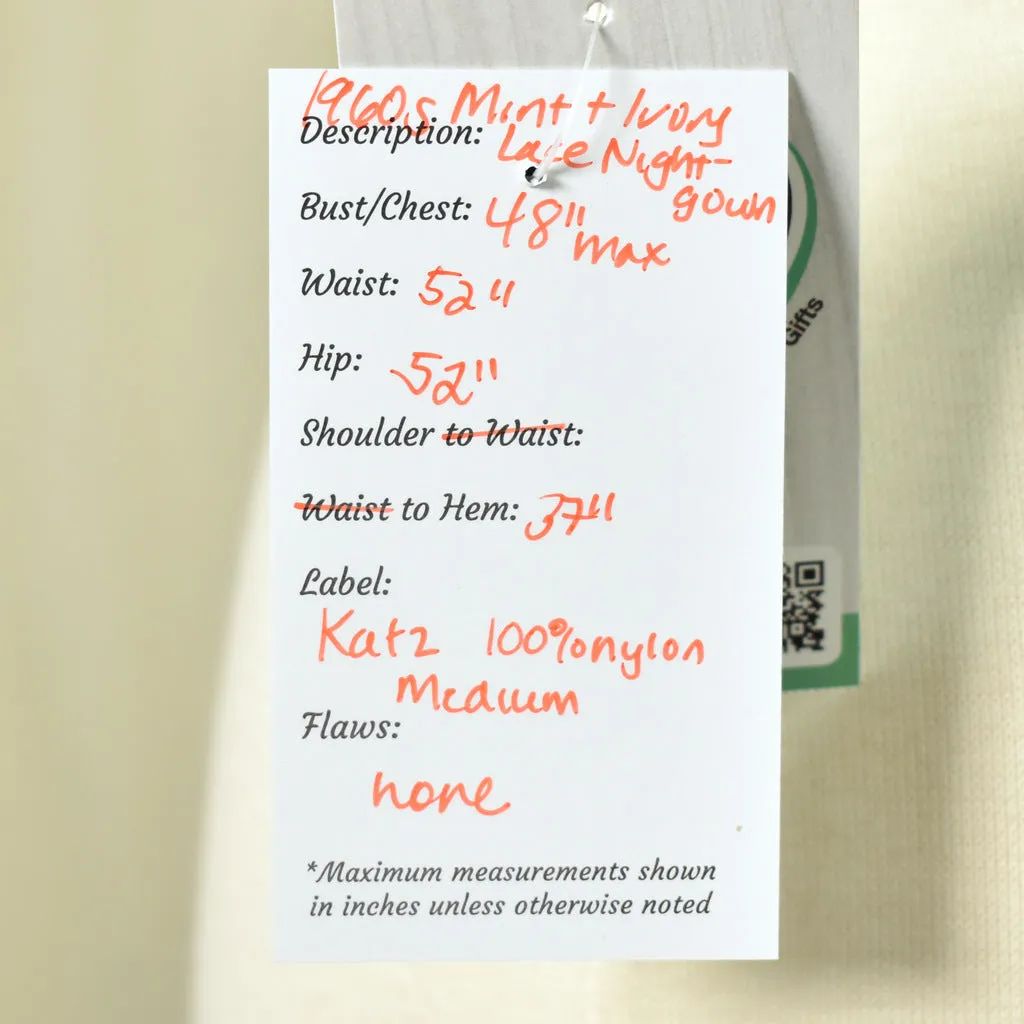 1960s Mint + Ivory
Description: Lace Night-
gown
Bust/Chest: 48" max
Waist: 52"
Hip: 52"
Shoulder to Waist:
Waist to Hem: 37"
Label:
Katz 100% nylon
Medium
Flaws:
none
*Maximum measurements shown
in inches unless otherwise noted
Gifts